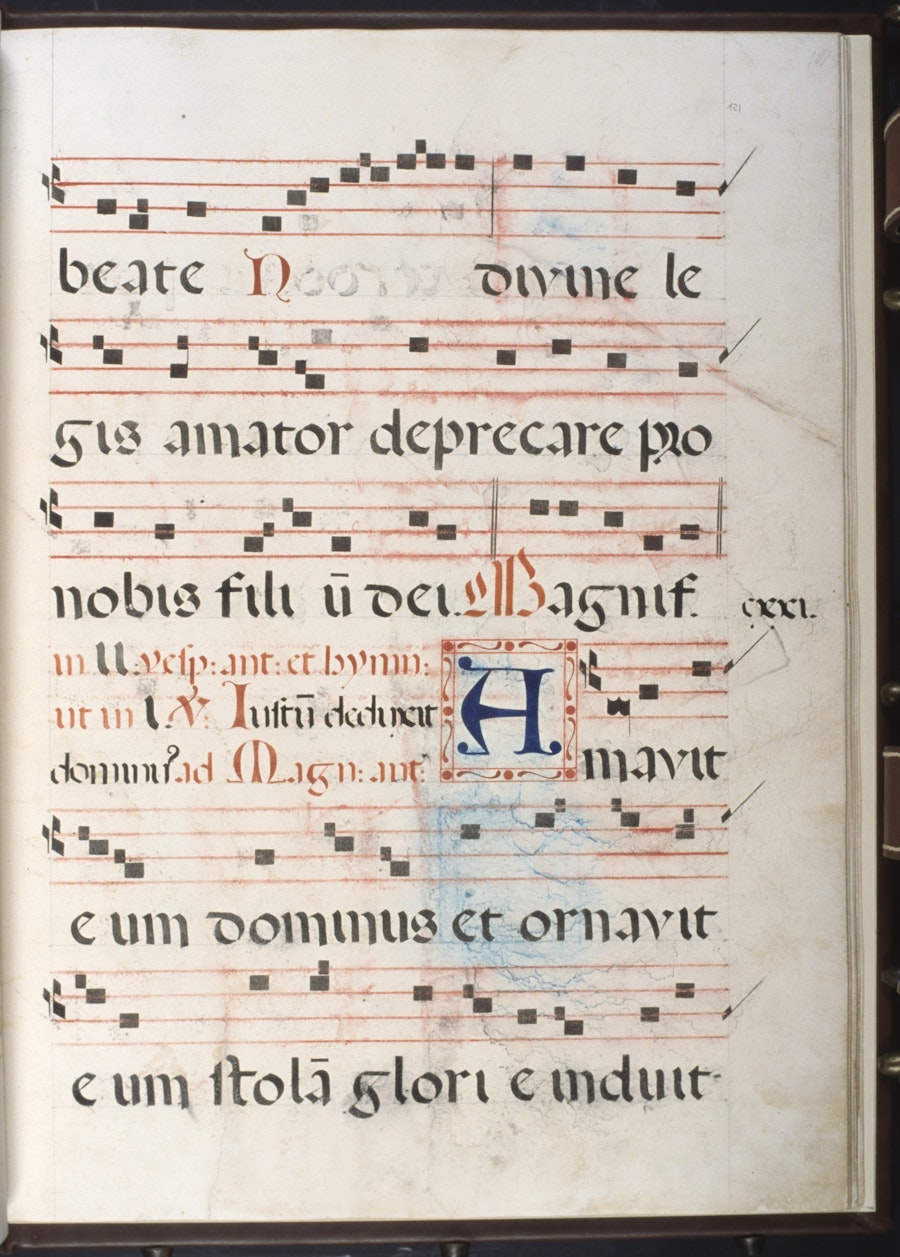 121
beate N divine le
gis amator deprecare pro
nobis fili ū dei. Magnif.
cxxi.
in II. vesp: ant: et hymn:
ut in I. ℣. Iustū deduxit
dominus ad Magn: ant:
Amavit
eum dominus et ornavit
eum stolā glori e induit